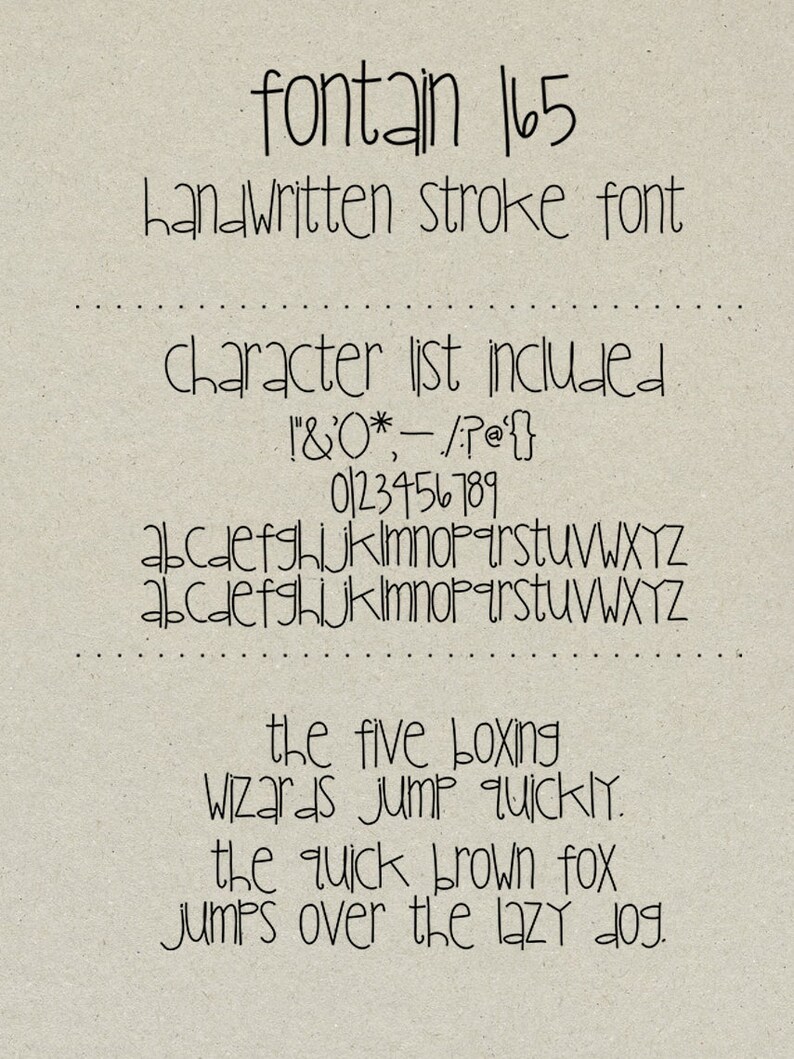 fontain 165
handwritten stroke font
character list included
!"&'()*,—./:?@‘{}
0123456789
abcdefghijklmnopqrstuvwxyz
abcdefghijklmnopqrstuvwxyz
the five boxing
wizards jump quickly.
the quick brown fox
jumps over the lazy dog.